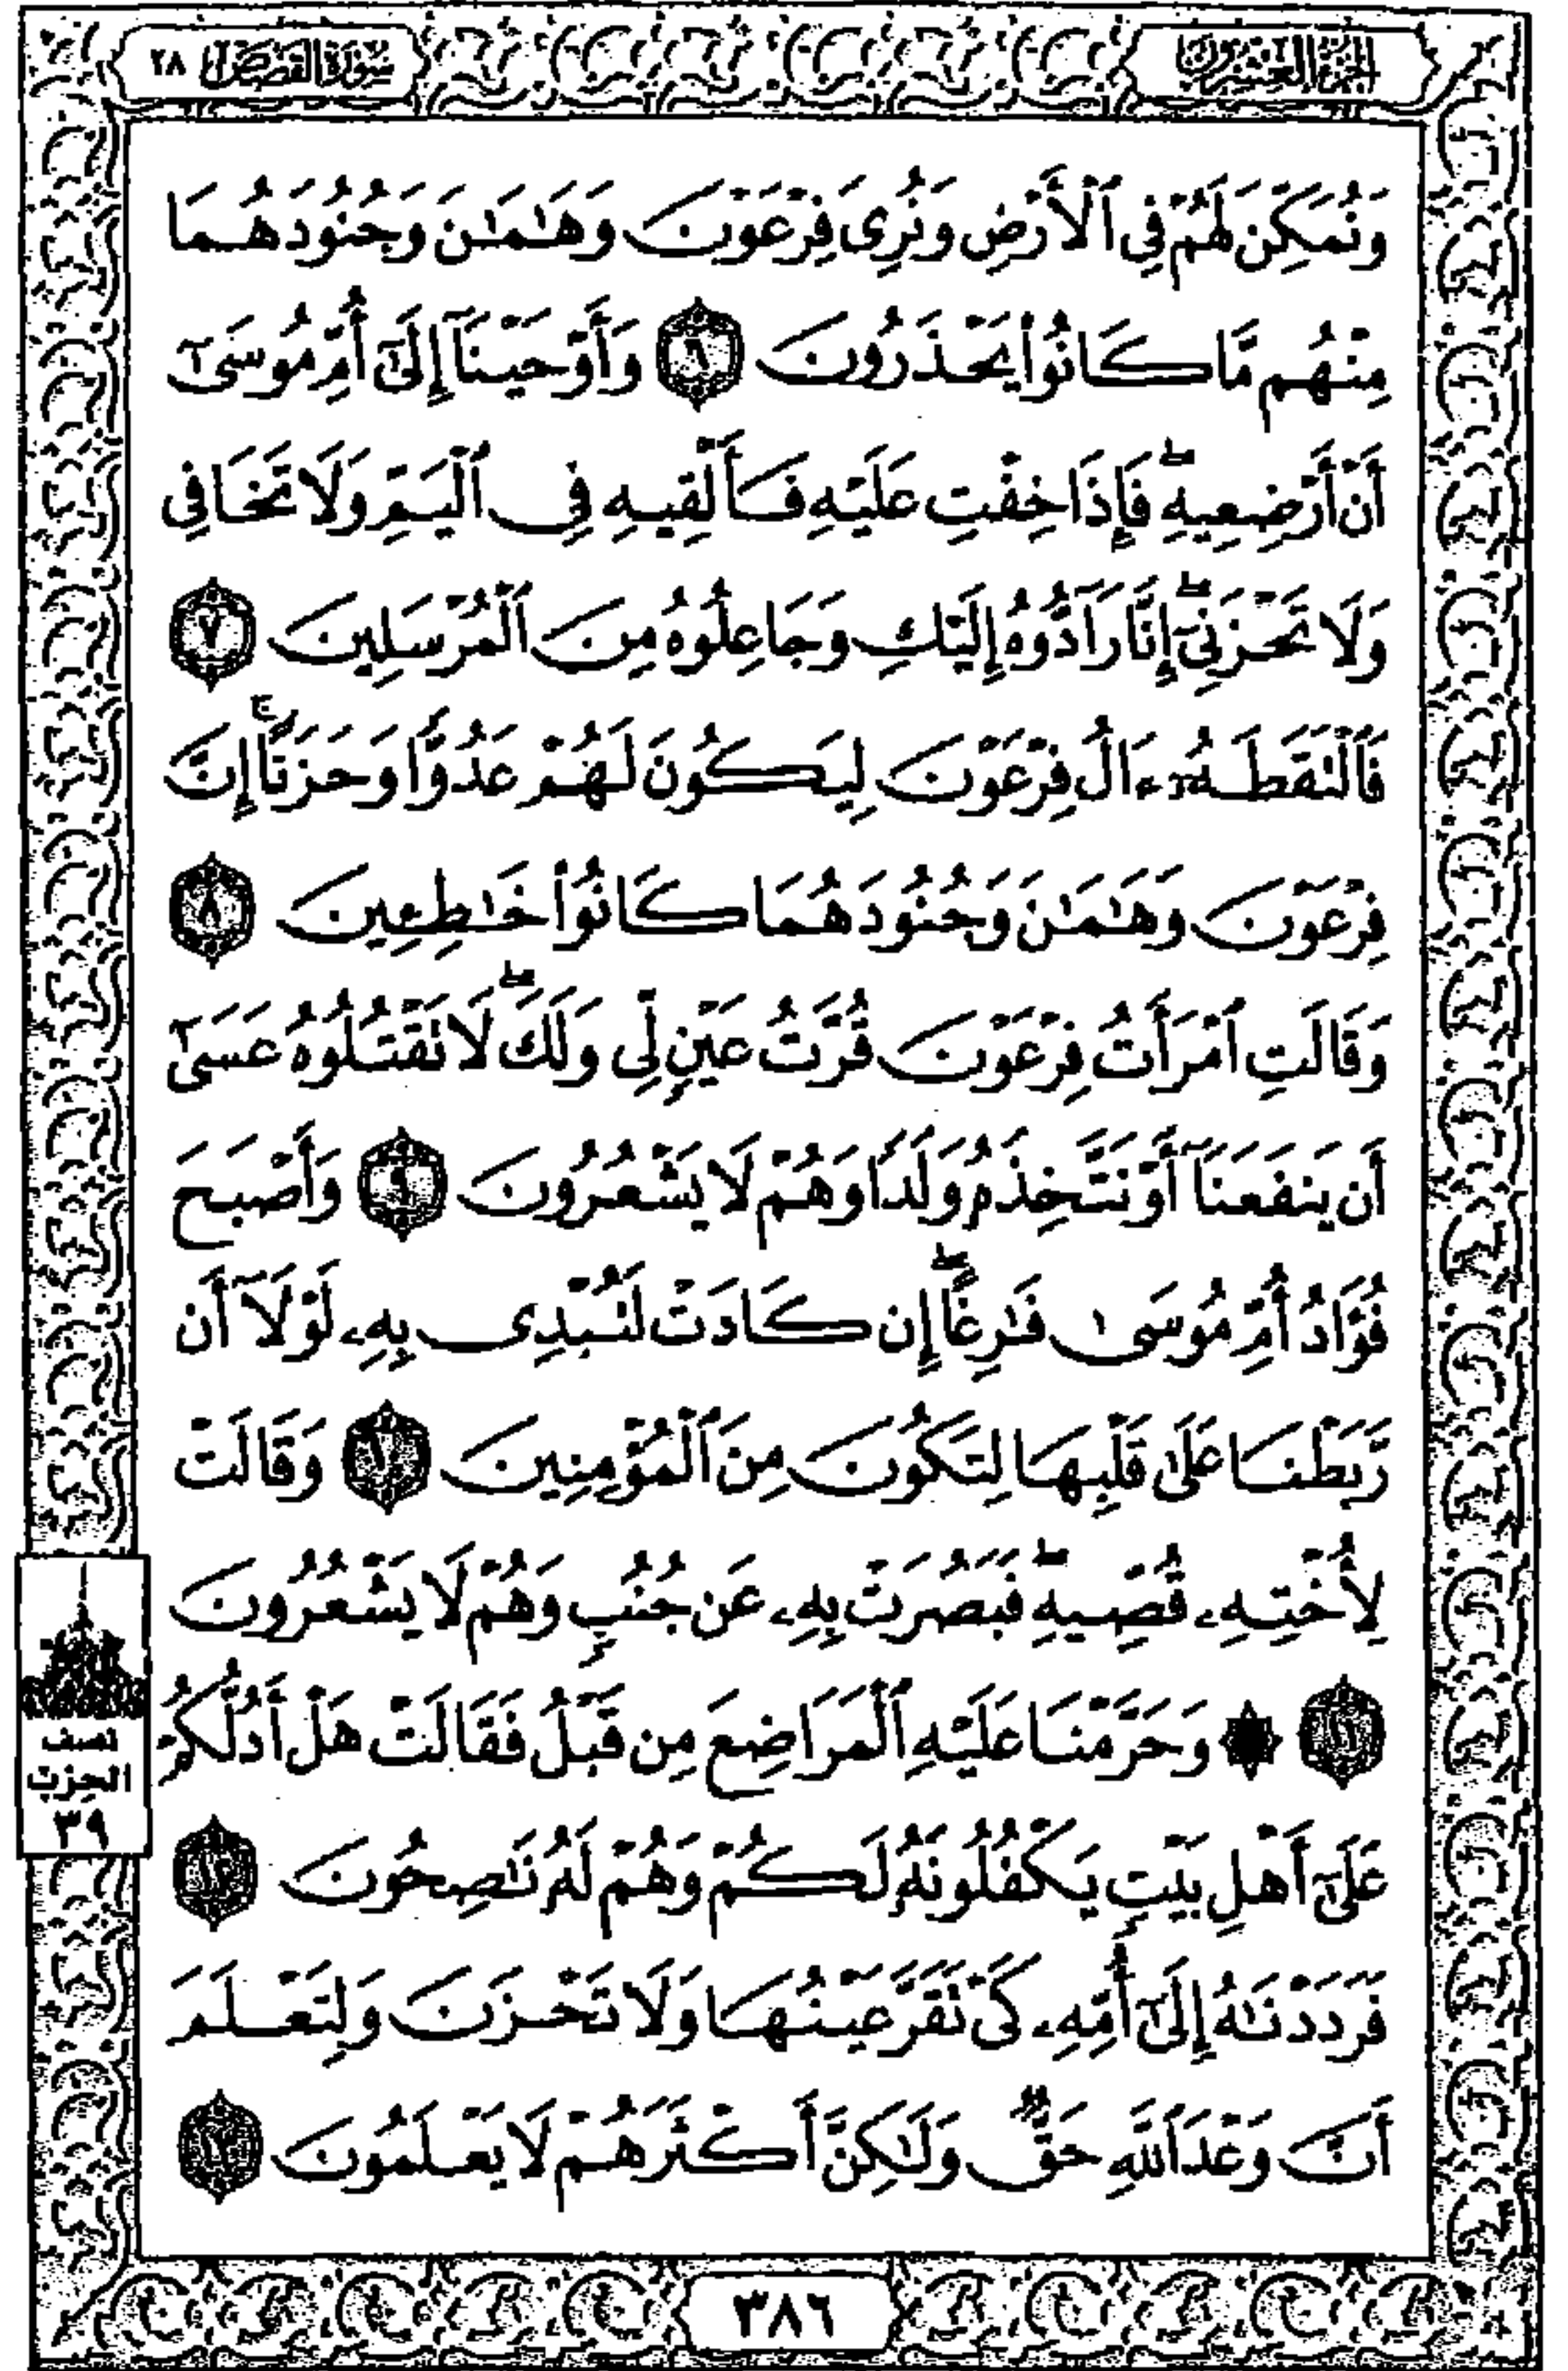 الجزء العشرون
سورة القصص ٢٨
وَنُمَكِّنَ لَهُمْ فِي ٱلْأَرْضِ وَنُرِيَ فِرْعَوْنَ وَهَٰمَٰنَ وَجُنُودَهُمَا
مِنْهُم مَّا كَانُوا۟ يَحْذَرُونَ ٦ وَأَوْحَيْنَآ إِلَىٰٓ أُمِّ مُوسَىٰٓ
أَنْ أَرْضِعِيهِ ۖ فَإِذَا خِفْتِ عَلَيْهِ فَأَلْقِيهِ فِى ٱلْيَمِّ وَلَا تَخَافِى
وَلَا تَحْزَنِىٓ ۖ إِنَّا رَآدُّوهُ إِلَيْكِ وَجَاعِلُوهُ مِنَ ٱلْمُرْسَلِينَ ٧
فَٱلْتَقَطَهُۥٓ ءَالُ فِرْعَوْنَ لِيَكُونَ لَهُمْ عَدُوًّا وَحَزَنًا ۗ إِنَّ
فِرْعَوْنَ وَهَٰمَٰنَ وَجُنُودَهُمَا كَانُوا۟ خَٰطِـِٔينَ ٨
وَقَالَتِ ٱمْرَأَتُ فِرْعَوْنَ قُرَّتُ عَيْنٍ لِّى وَلَكَ ۖ لَا تَقْتُلُوهُ عَسَىٰٓ
أَن يَنفَعَنَآ أَوْ نَتَّخِذَهُۥ وَلَدًا وَهُمْ لَا يَشْعُرُونَ ٩ وَأَصْبَحَ
فُؤَادُ أُمِّ مُوسَىٰ فَٰرِغًا ۖ إِن كَادَتْ لَتُبْدِى بِهِۦ لَوْلَآ أَن
رَّبَطْنَا عَلَىٰ قَلْبِهَا لِتَكُونَ مِنَ ٱلْمُؤْمِنِينَ ١٠ وَقَالَتْ
لِأُخْتِهِۦ قُصِّيهِ ۖ فَبَصُرَتْ بِهِۦ عَن جُنُبٍ وَهُمْ لَا يَشْعُرُونَ
١١ ۞ وَحَرَّمْنَا عَلَيْهِ ٱلْمَرَاضِعَ مِن قَبْلُ فَقَالَتْ هَلْ أَدُلُّكُمْ
عَلَىٰٓ أَهْلِ بَيْتٍ يَكْفُلُونَهُۥ لَكُمْ وَهُمْ لَهُۥ نَٰصِحُونَ ١٢
فَرَدَدْنَٰهُ إِلَىٰٓ أُمِّهِۦ كَىْ تَقَرَّ عَيْنُهَا وَلَا تَحْزَنَ وَلِتَعْلَمَ
أَنَّ وَعْدَ ٱللَّهِ حَقٌّ وَلَٰكِنَّ أَكْثَرَهُمْ لَا يَعْلَمُونَ ١٣
نصف
الحزب
٣٩
٣٨٦